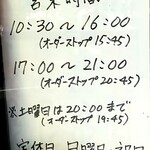 営業時間
10:30～16:00
(オーダーストップ15:45)
17:00～21:00
(オーダーストップ20:45)
※土曜日は20:00まで
(オーダーストップ19:45)
定休日 日曜日・祝日